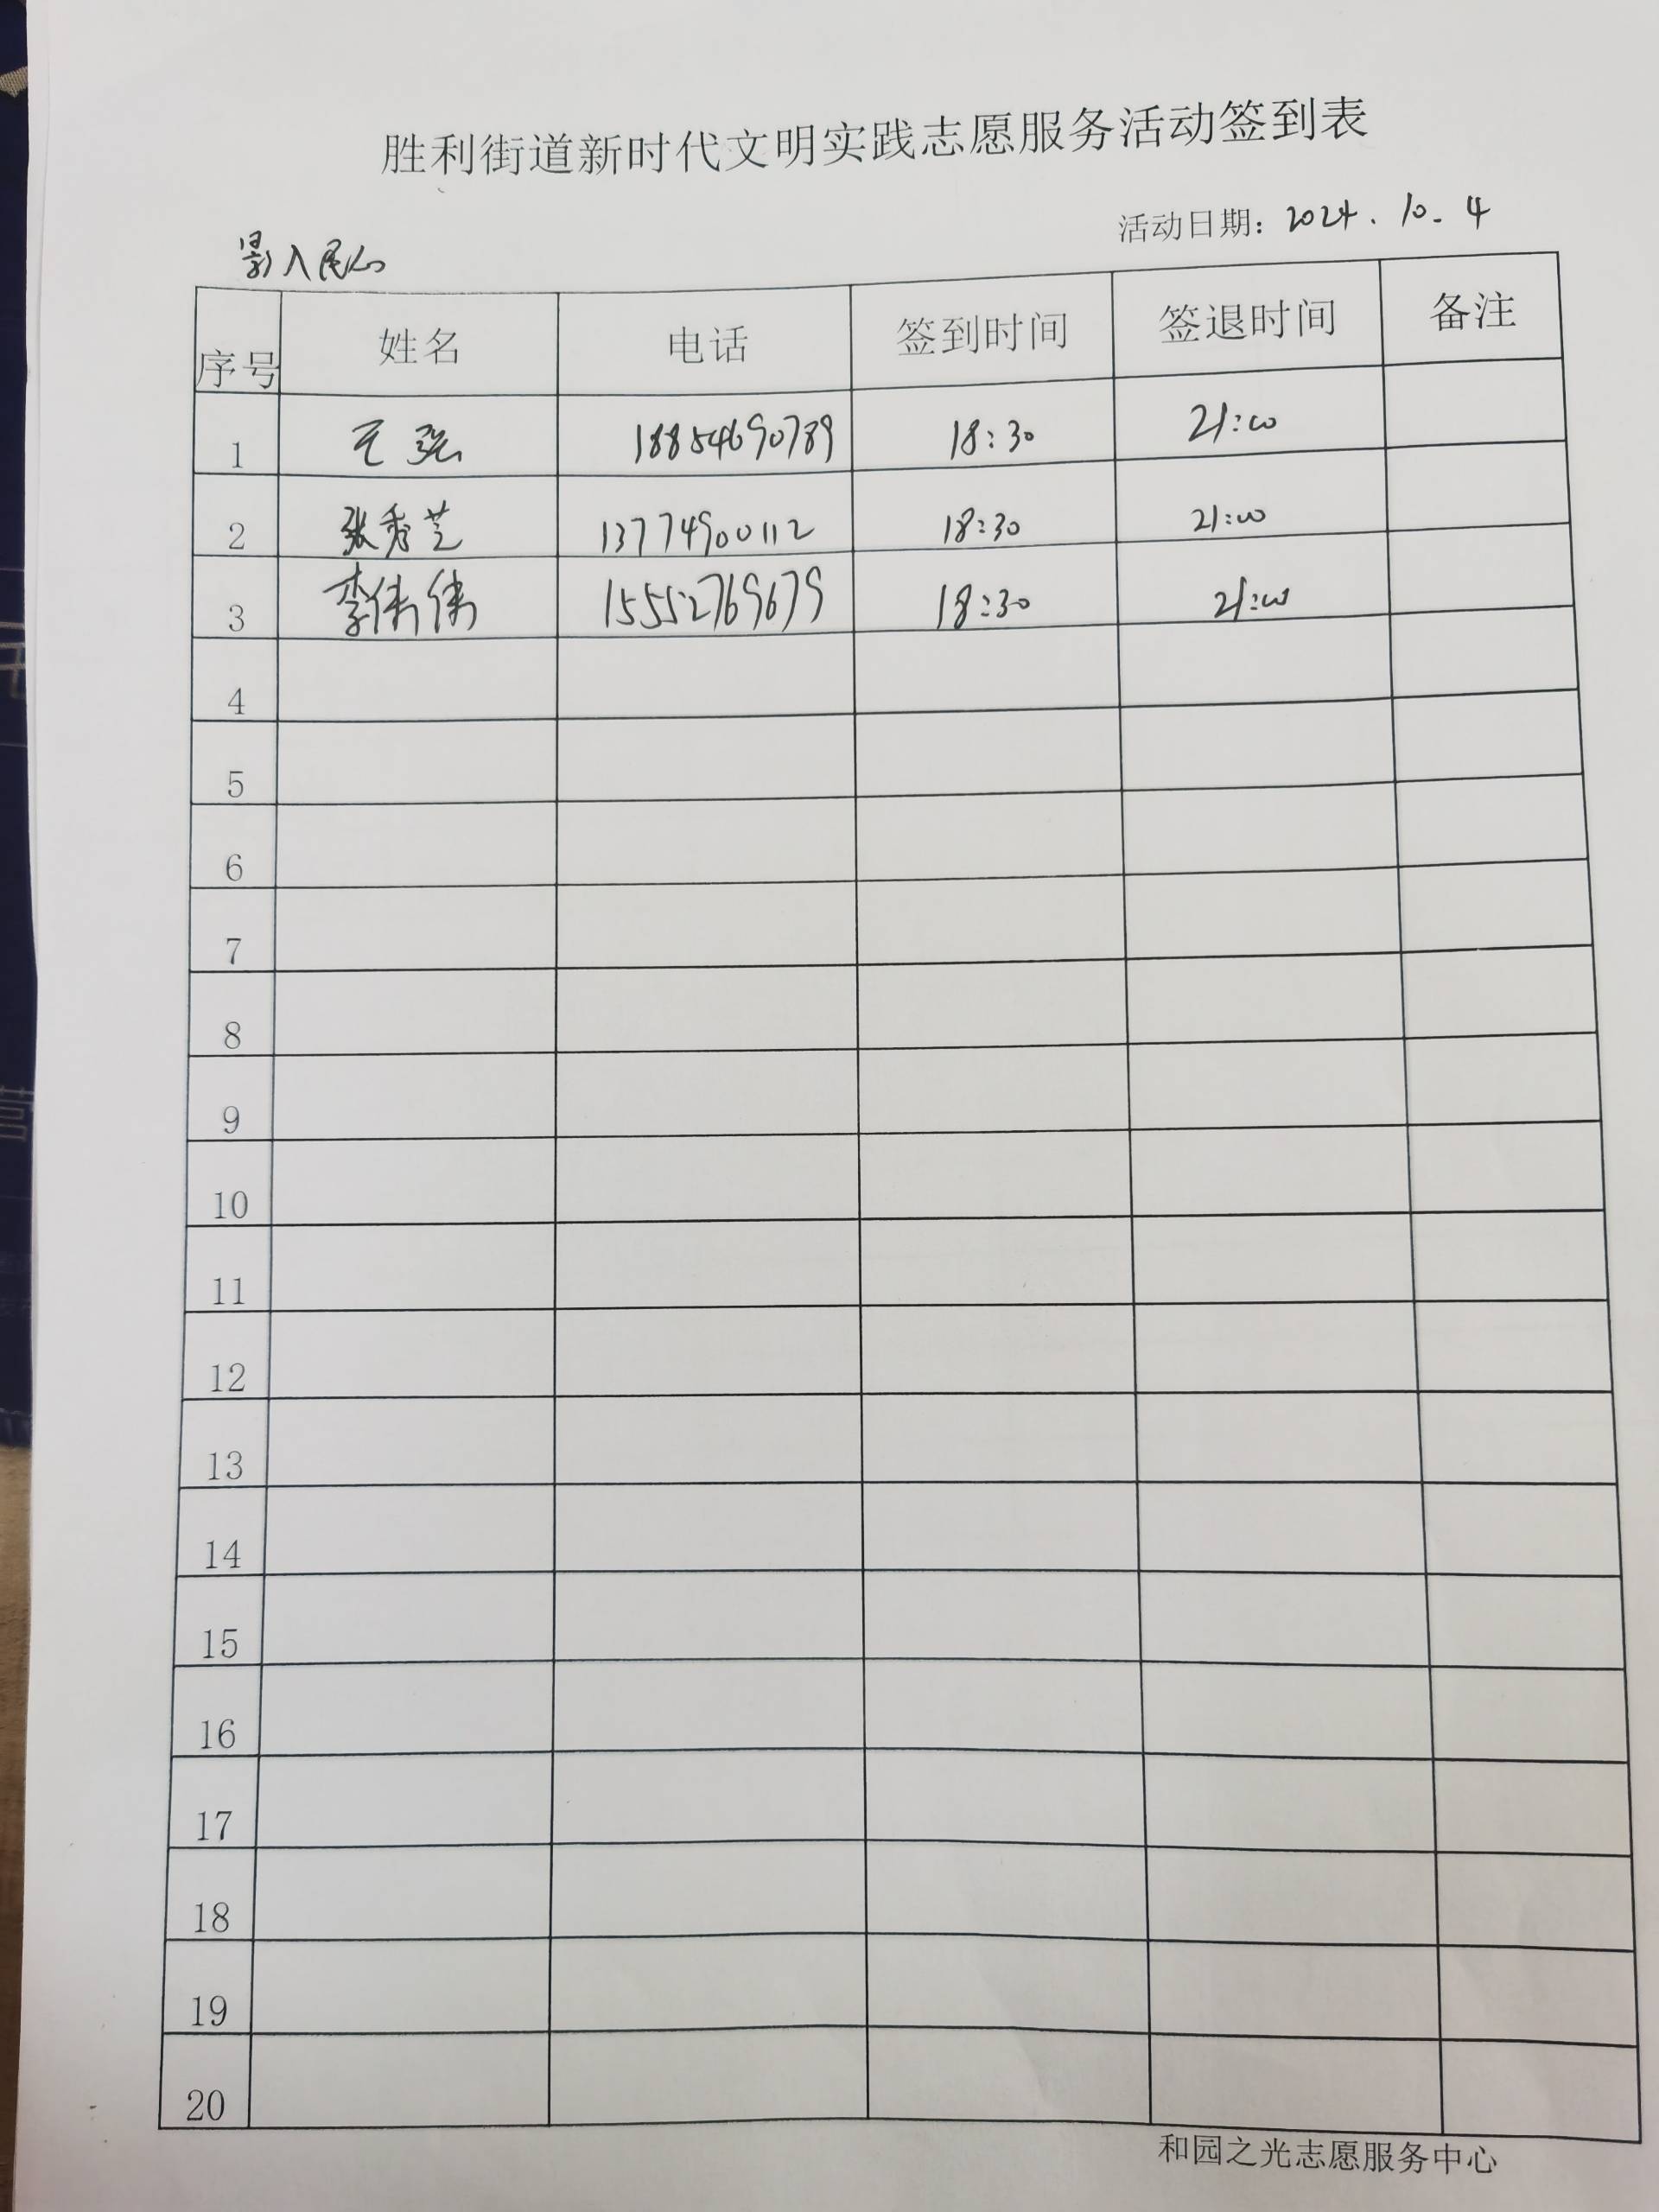 胜利街道新时代文明实践志愿服务活动签到表
活动日期: 2024.10.4
影入民心
序号 姓名 电话 签到时间 签退时间 备注
1 王强 18854690789 18:30 21:00
2 张秀芝 13774900112 18:30 21:00
3 李伟伟 15552769679 18:30 21:00
4
5
6
7
8
9
10
11
12
13
14
15
16
17
18
19
20
和园之光志愿服务中心